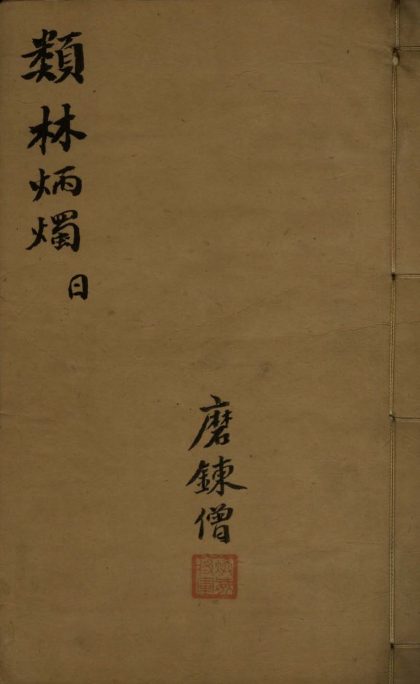 類林炳燭 日
磨鍊僧